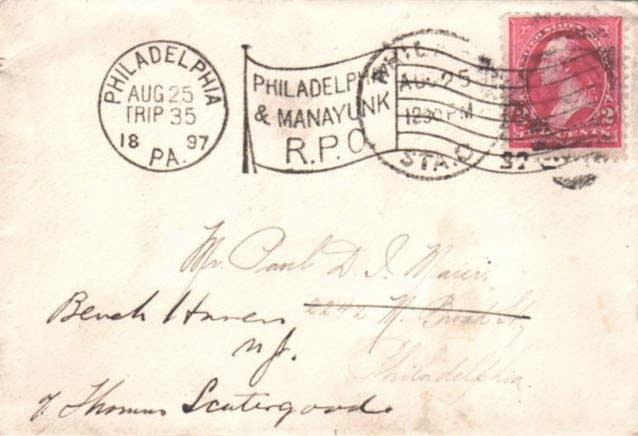 PHILADELPHIA
AUG 25
TRIP 35
18 97
PA.
PHILADELPHIA
& MANAYUNK
R.P.O
AUG 25
12 30 PM
STA. O
97
Mr. Paul D. I. Maier,
2242 N. Broad St,
Philadelphia.
Beach Haven
N.J.
Thomas Scatergood